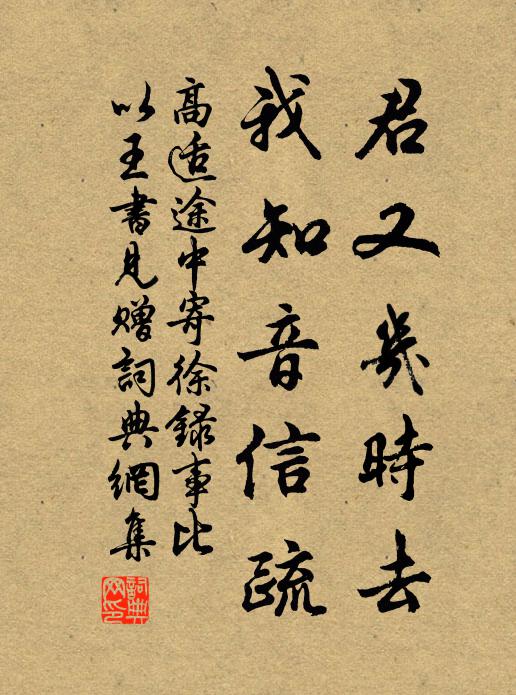 君又幾時去
我知音信疏
高適途中寄徐錄事比
以王書見贈詞典網集
詞典網印